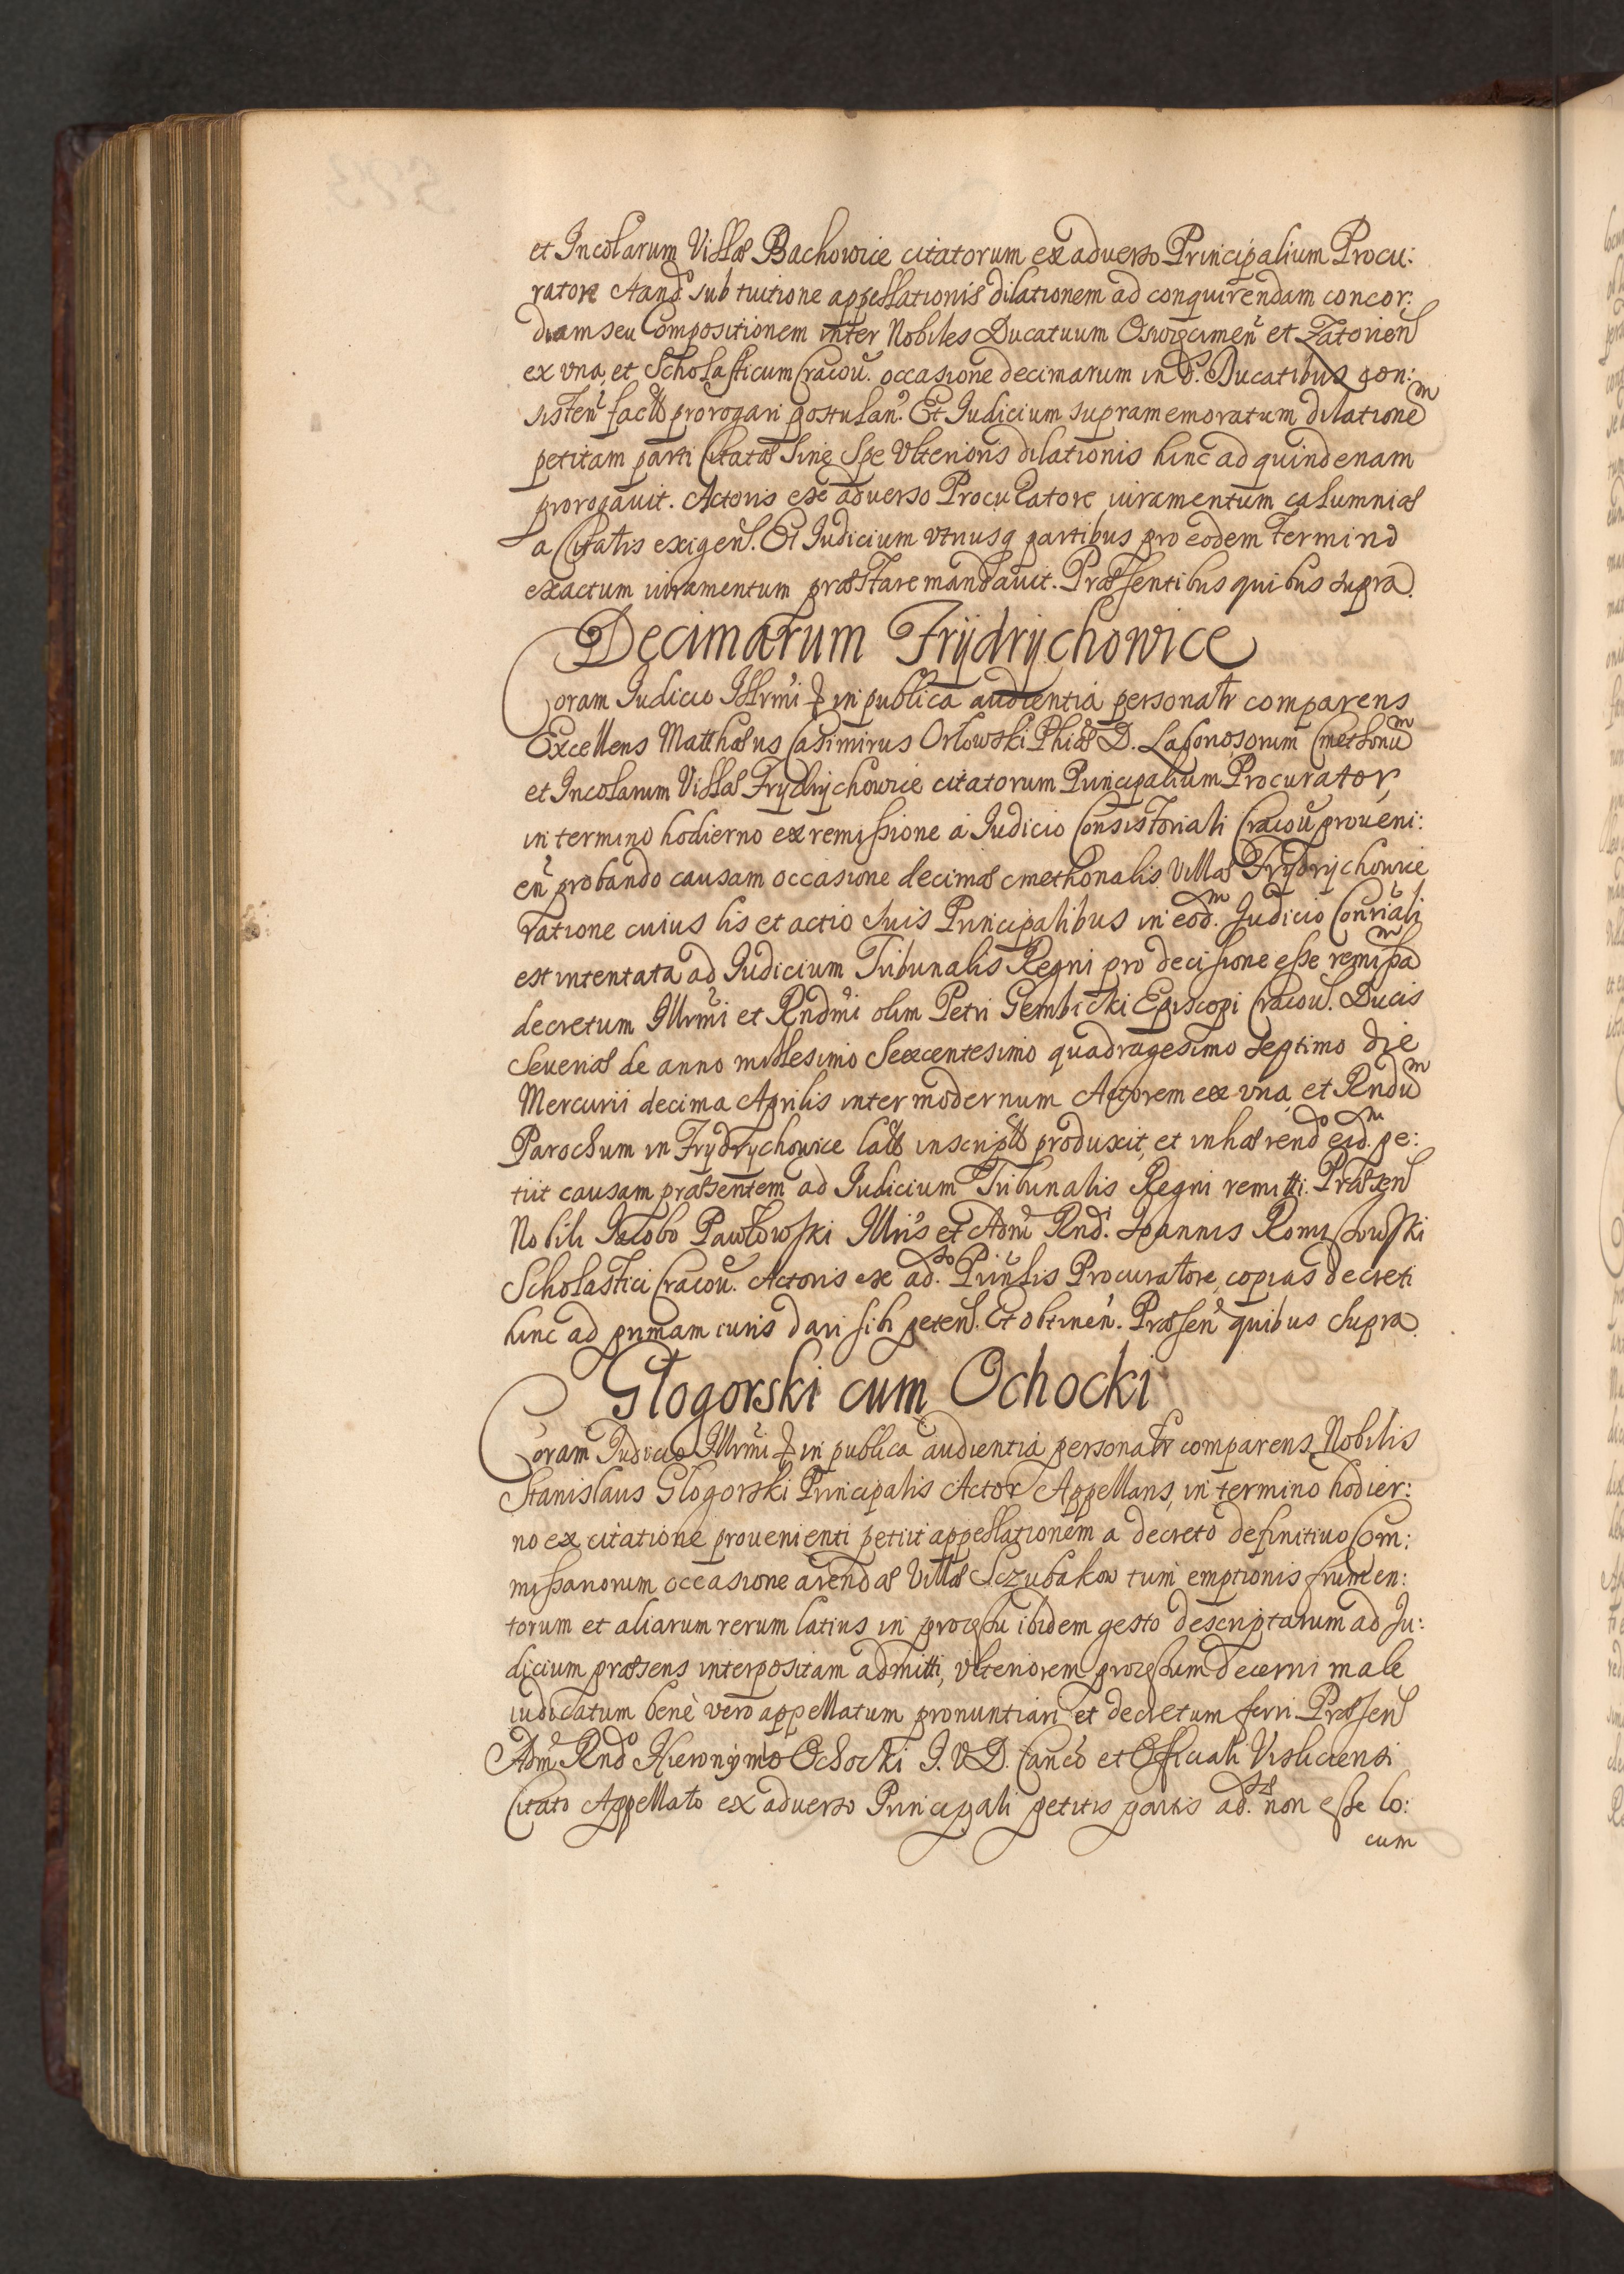 et Incolarum Villæ Bachowice citatorum ex aduerso Principalium Procu:
ratore stand. sub tuitione appellationis dilationem ad conquirendam concor:
diam seu Compositionem inter Nobiles Ducatuum Oswiecimeñ et Zatorien
ex vna, et Scholasticum Cracoũ. occasione decimarum in d. Ducatibus con:
sisteñ fact prorogari postulañ. Et Iudicium supramemoratum dilatione m
petitam parti Citatæ Sine Spe Vlterioris dilationis hinc ad quindenam
prorogauit. Actoris ex aduerso Procuratore iuramentum calumniæ
a Citatis exigen. Et Iudicium vtrusq partibus pro eodem Termino
exactum iuramentum præstare mandauit. Præsentibus quibus supra.
Decimarum Frÿdrÿchowice
Coram Iudicio Illrmi & in publica audientia personatr comparens
Excellens Matthæus Casimirus Orłowski Phiæ D. Laboriosorum Cmethonu m
et Incolarum Villæ Frÿdrÿchowice citatorum Principalium Procurator,
in termino hodierno ex remissione á Iudicio Consistoriali Cracoũ proueni:
eñ probando causam occasione decimæ cmethonalis Villæ Frÿdrÿchowice
ratione cuius lis et actio Suis Principalibus in eod. m Iudicio Consriali
est intentata ad Iudicium Tribunalis Regni pro decissione esse remissa m
decretum Illrmi et Rndmi olim Petri Gembicki Episcopi Cracou. Ducis
Seueriæ de anno millesimo Sexcentesimo quadragesimo Septimo die
Mercurii decima Aprilis inter modernum Actorem ex vna, et Rndu m
Parochum in Frÿdrÿchowice lat inscript produxit, et inhærend do eid. m pe:
tiit causam præsentem ad Iudicium Tribunalis Regni remitti. Præsen
Nobili Iacobo Pawłowski Illris et Adm Rnd. Ioannis Romiszowski
Scholastici Cracou. Actoris ex ad. so Prinlis Procuratore, copias decreti
hinc ad primam iuris dari sibi peten. Et obtineñ. Præseñ quibus Supra.
Głogorski cum Ochocki
Coram Iudicio Illrmi & in publica audientia personatr comparens Nobilis
Stanislaus Głogorski Principalis Actor Appellans, in termino hodier:
no ex citatione prouenienti petiit appellationem a decreto definitiuo Com:
missariorum occasione arendæ Villæ Sczubakow tum emptionis frumen:
torum et aliarum rerum latius in processu ibidem gesto descriptarum ad Iu:
dicium præsens interpositam admitti, vlteriorem processum decerni male
iudicatum bené vero appellatum pronuntiari et decretum ferri Præsen
Adm Rndo Hieronÿmo Ochocki I. V D. Canco et Officiali Visliciensi
Citato Appellato ex aduerso Principali petitis partis ad. sæ non esse lo:
cum